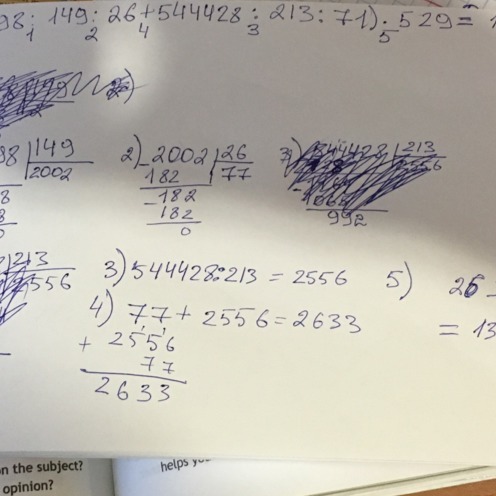 98 : 149 : 26 + 544428 : 213 : 71) · 529 =
1 2 4 3 5
98 | 149
2002
2) - 2002 | 26
182 77
- 182
182
0
3) 544428 | 213
992
213
2556
3) 544428 : 213 = 2556
4) 77 + 2556 = 2633
+ 2556
77
2633
5) 26
= 13
n the subject?
opinion?
helps